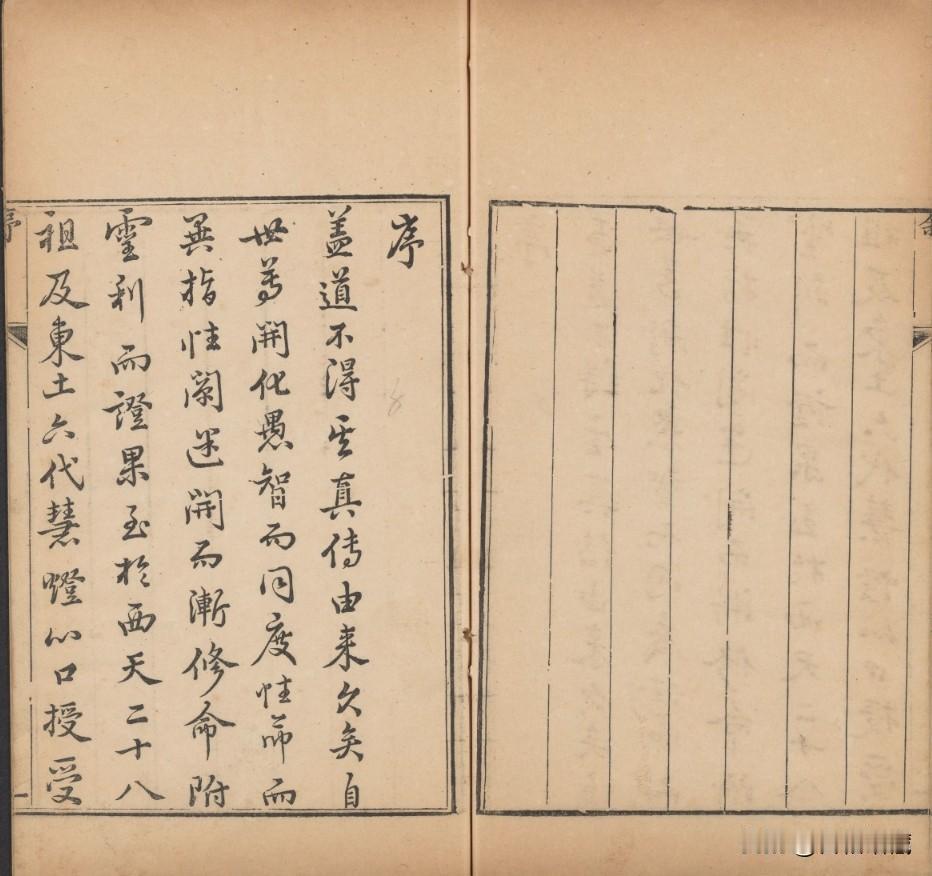 序
盖道不得其真傳由来久矣自
世尊開化愚智而同度性命而
異指性闡迷開而漸修命附
靈利而證果至於西天二十八
祖及東土六代慧燈心口授受
序